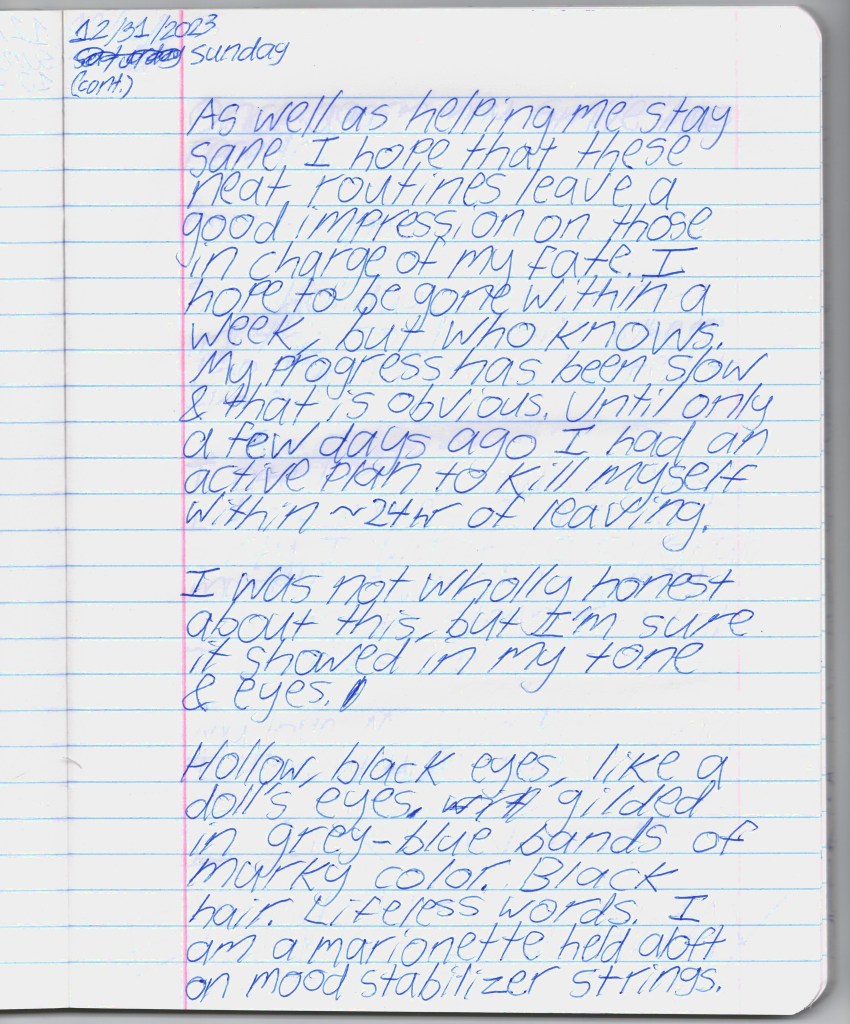 12/31/2023
Saturday Sunday
(cont.)
As well as helping me stay
sane, I hope that these
neat routines leave a
good impression on those
in charge of my fate. I
hope to be gone within a
week, but who knows.
My progress has been slow
& that is obvious. Until only
a few days ago I had an
active plan to kill myself
within ~24hr of leaving.
I was not wholly honest
about this, but I'm sure
it showed in my tone
& eyes.
Hollow, black eyes, like a
doll's eyes, gilded
in grey-blue bands of
murky color. Black
hair. Lifeless words. I
am a marionette held aloft
on mood stabilizer strings.